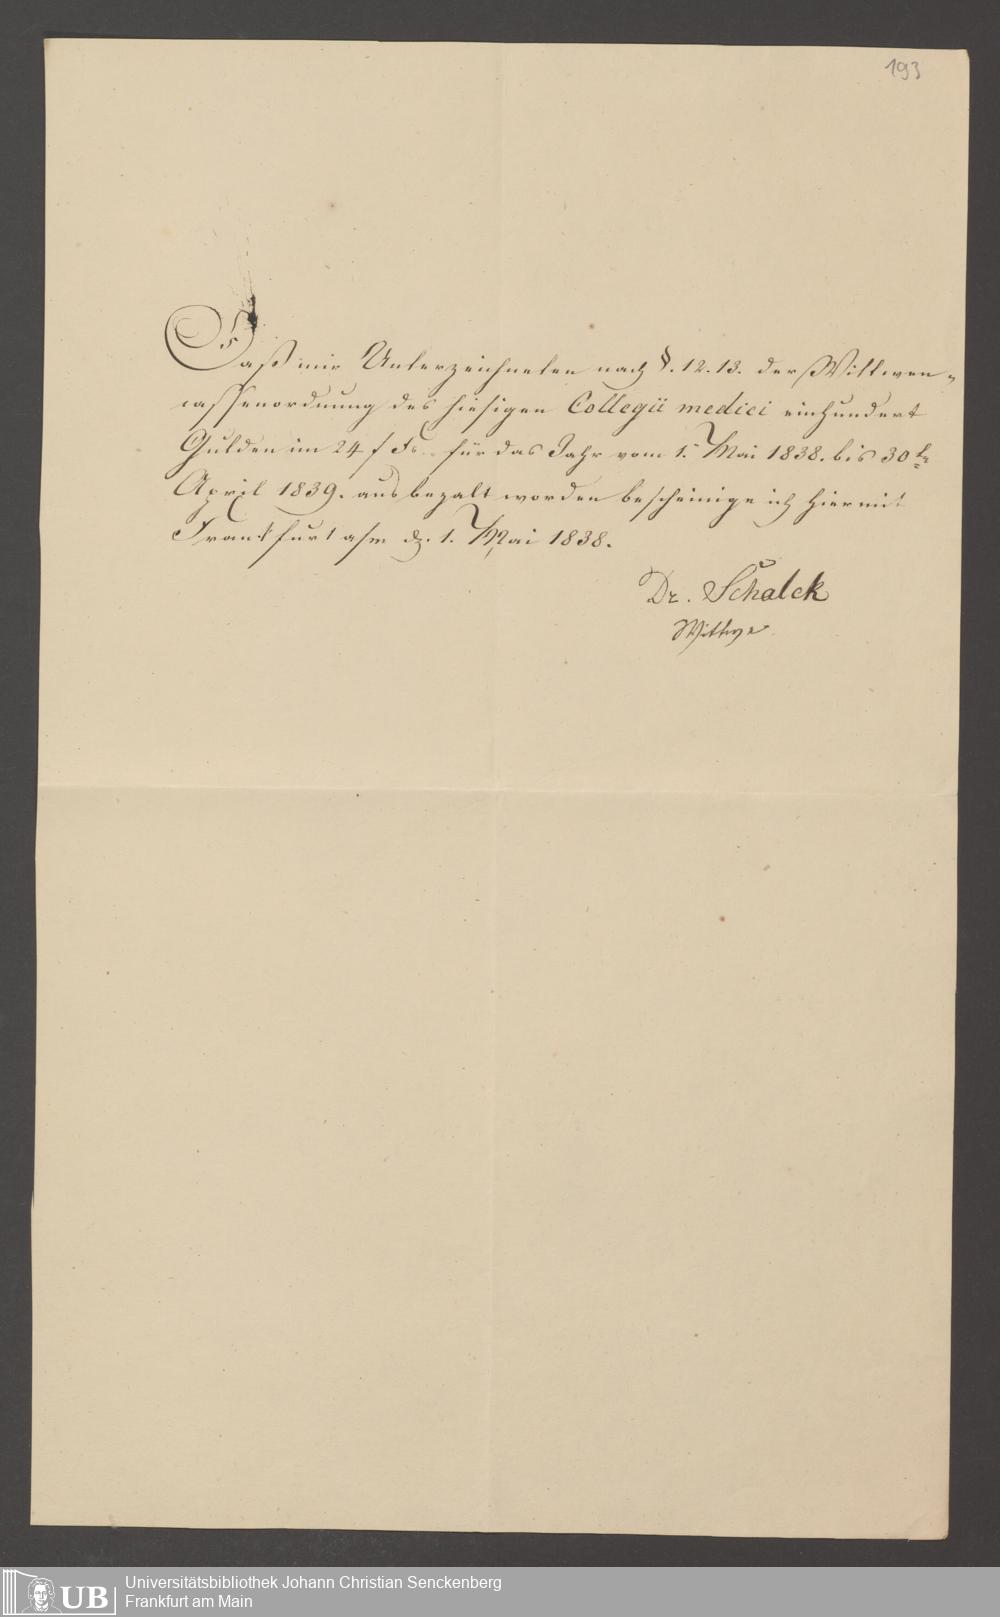 193
Daß mir Unterzeichneten nach §. 12. 13. der Wittwen-
cassenordnung des hiesigen Collegii medici einhundert
Gulden im 24 f Fs. für das Jahr vom 1. Mai 1838. bis 30te
April 1839. ausbezalt worden bescheinige ich hiermit
Frankfurt a/m d. 1. Mai 1838.
Dr. Schalck
Wittwe
UB
Universitätsbibliothek Johann Christian Senckenberg
Frankfurt am Main